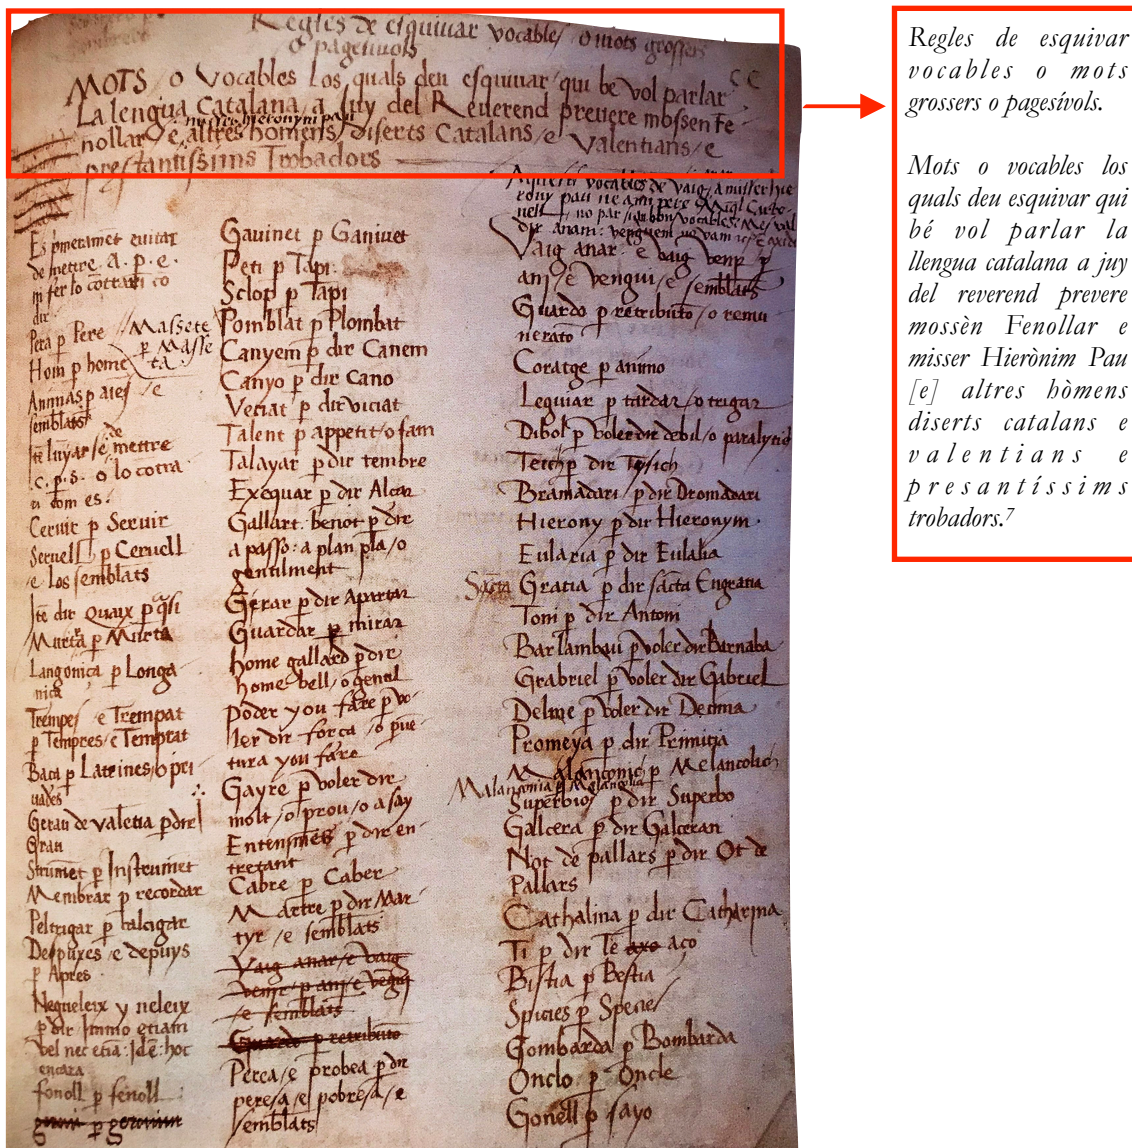 Regles de esquivar vocables o mots grossers
o pagesivols
MOTS o Vocables Los quals deu esquivar qui be vol parlar
La lengua Catalana a Juy del Reverend prevere mossen Fe
nollar / e altres homens diserts Catalans / e Valentians / e
prestantissims Trobadors
Es
evitar
de metre. A. p. e.
dir
Pera p Pere
Massete
p Masse
ta
Hom p home
Animas p
/ e
semblats
de
metre
.c. p. s. o lo
com es.
Cervir p Servir
Servel p Cervell
e Los semblats
dir quaix p
Murta
Langonica p Longa
nica
Trempes e Trempat
p Tempres e Temprat
Baci p Latrines o pri
vades
Gerau de valetia p dir
Grau
Strumet p Instrumet
Membrar p recordar
Peltrigar p calcigar
Despuxes e depuys
p Apres
Negueleix y neleix
p dir Immo etiam
vel nec etia: Id e: hoc
encara
fonoll p fenoll
Gavinet p Ganivet
Peti p Tapi
Sclop p Tapi
Pomblat p Plombat
Canyem p dir Canem
Canyo p dir Cano
Veciat p dir viciat
Talent p appetit / o fam
Talayar p dir tembre
Exequar p dir Alcar
Gallart. benot p dir
a passo: a plan pla / o
gentilment
Gerar p dir Apartar
Guardar p mirar
home gallard p dir
home bell / o gentil
Poder you fare p vo
ler dir forca / o pue
tura you fare
Gayre p voler dir
molt / o prou / o asay
Entensmes p dir en
tretant
Cabre p Caber
Martre p dir Mar
tyr / e semblats
Vaig anar / e vaig
venir p ani / e vengui
/ e semblats
Guardo p retributio
Perea / e probea p dir
peresa / e pobresa / e
semblats
Vaig anar. e vaig venir p
ani / e vengui / e semblats
Guardo p retributio / o remu
neratio
Coratge p animo
Leguiar p tardar / o trigar
Dibol p voler dir debil / o paralytic
Bramadari p dir Dromadari
Hierony p dir Hieronym
Eularia p dir Eulalia
Sacta Gratia p dir sacta Engratia
Toni p dir Antoni
Bartambau p voler dir Barnaba
Grabriel p voler dir Gabriel
Delme p voler dir Decima
Promeya p dir Primitia
Malanconic p Melancolich
Malanconia p Melanglia
Superbios p dir Superbo
Galcera p dir Galceran
Not de pallars p dir Ot de
Pallars
Cathalina p dir Catharina
Ti p dir Te axo aço
Bistia p Bestia
Spicies p Species
Gombarda p Bombarda
Onclo p Oncle
Gonell p sayo
Regles de esquivar
vocables o mots
grossers o pagesívols.
Mots o vocables los
quals deu esquivar qui
bé vol parlar la
llengua catalana a juy
del reverend prevere
mossèn Fenollar e
misser Hierònim Pau
[e] altres hòmens
diserts catalans e
valentians e
presantíssims
trobadors.7